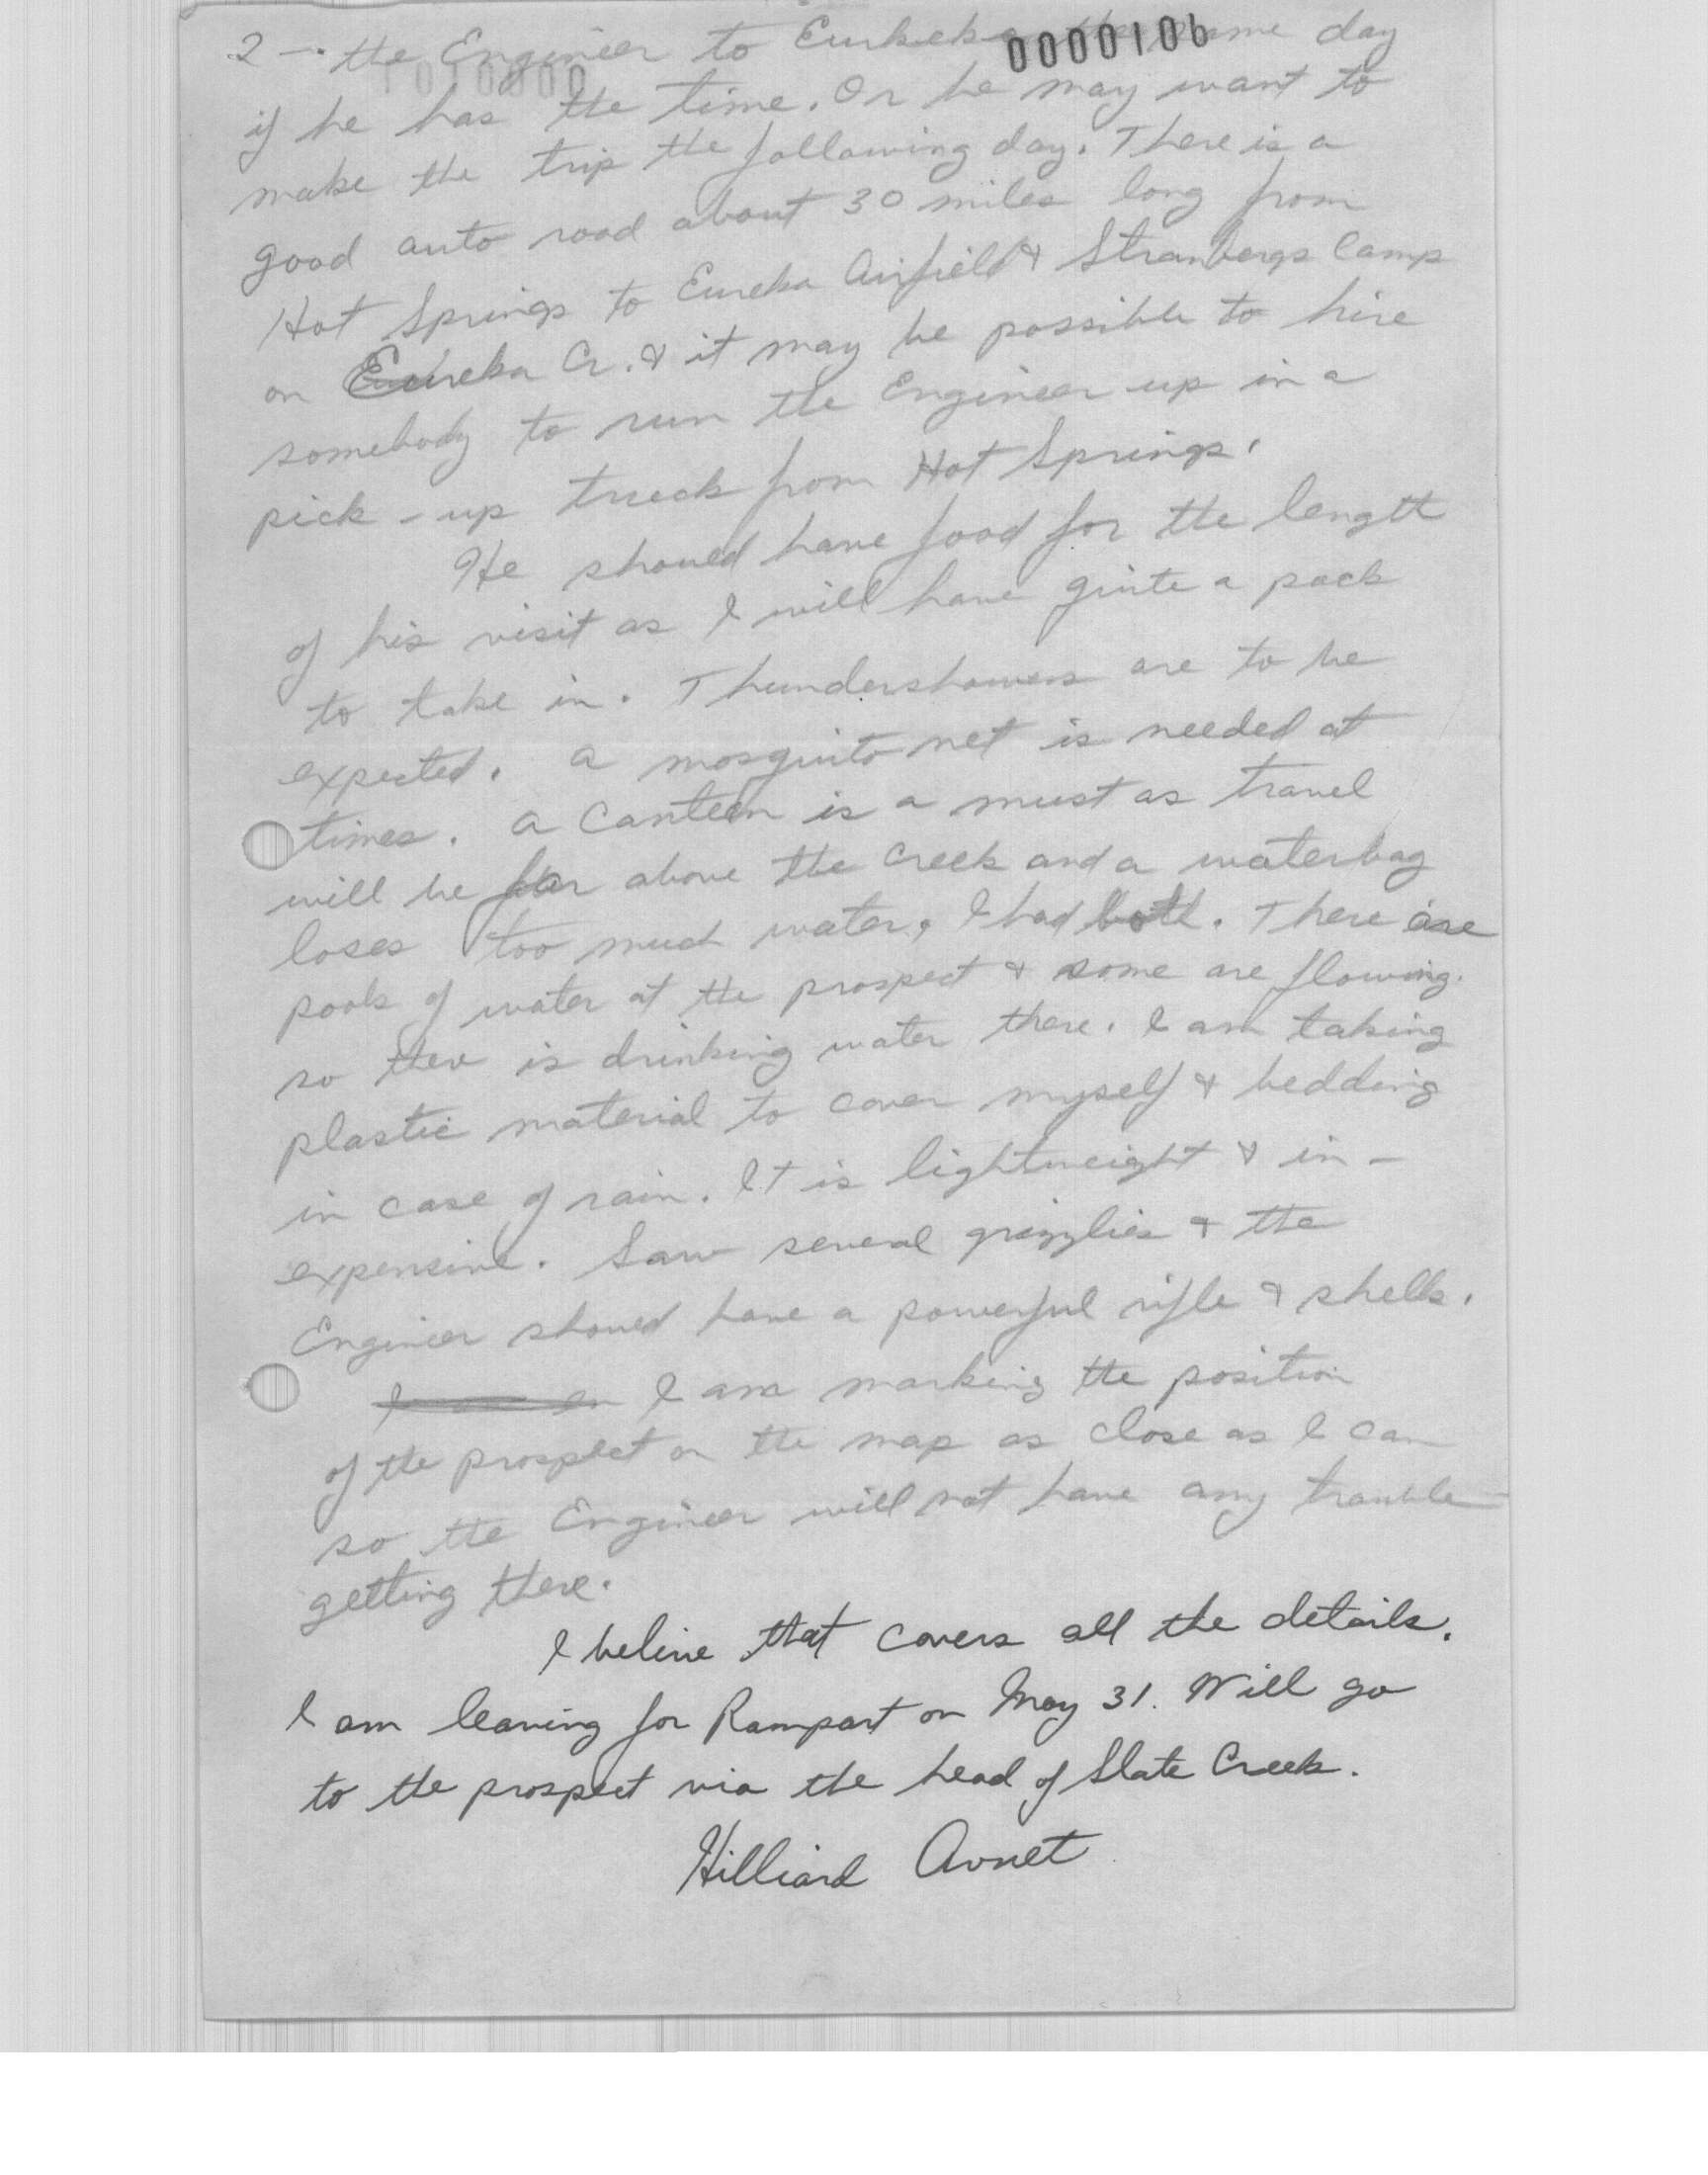 0000106
2 - the Engineer to the same day
if he has the time. Or he may want to
make the trip the following day. There is a
good auto road about 30 miles long from
Hot Springs to Eureka Airfield & Stranbergs Camp
on Eureka Cr. & it may be possible to hire
somebody to run the Engineer up in a
pick-up truck from Hot Springs.
He should have food for the length
of his visit as I will have quite a pack
to take in. Thundershowers are to be
expected. A mosquito net is needed at
times. A Canteen is a must as travel
will be far above the creek and a waterbag
loses too much water, I had both. There are
pools of water at the prospect & some are flowing.
so there is drinking water there. I am taking
plastic material to cover myself & bedding
in case of rain. It is lightweight & in-
expensive. Saw several grizzlies & the
Engineer should have a powerful rifle & shells.
I am marking the position
of the prospect on the map as close as I can
so the Engineer will not have any trouble
getting there.
I belive that covers all the details.
I am leaving for Rampart on May 31. Will go
to the prospect via the head of Slate Creek.
Hilliard Avnet